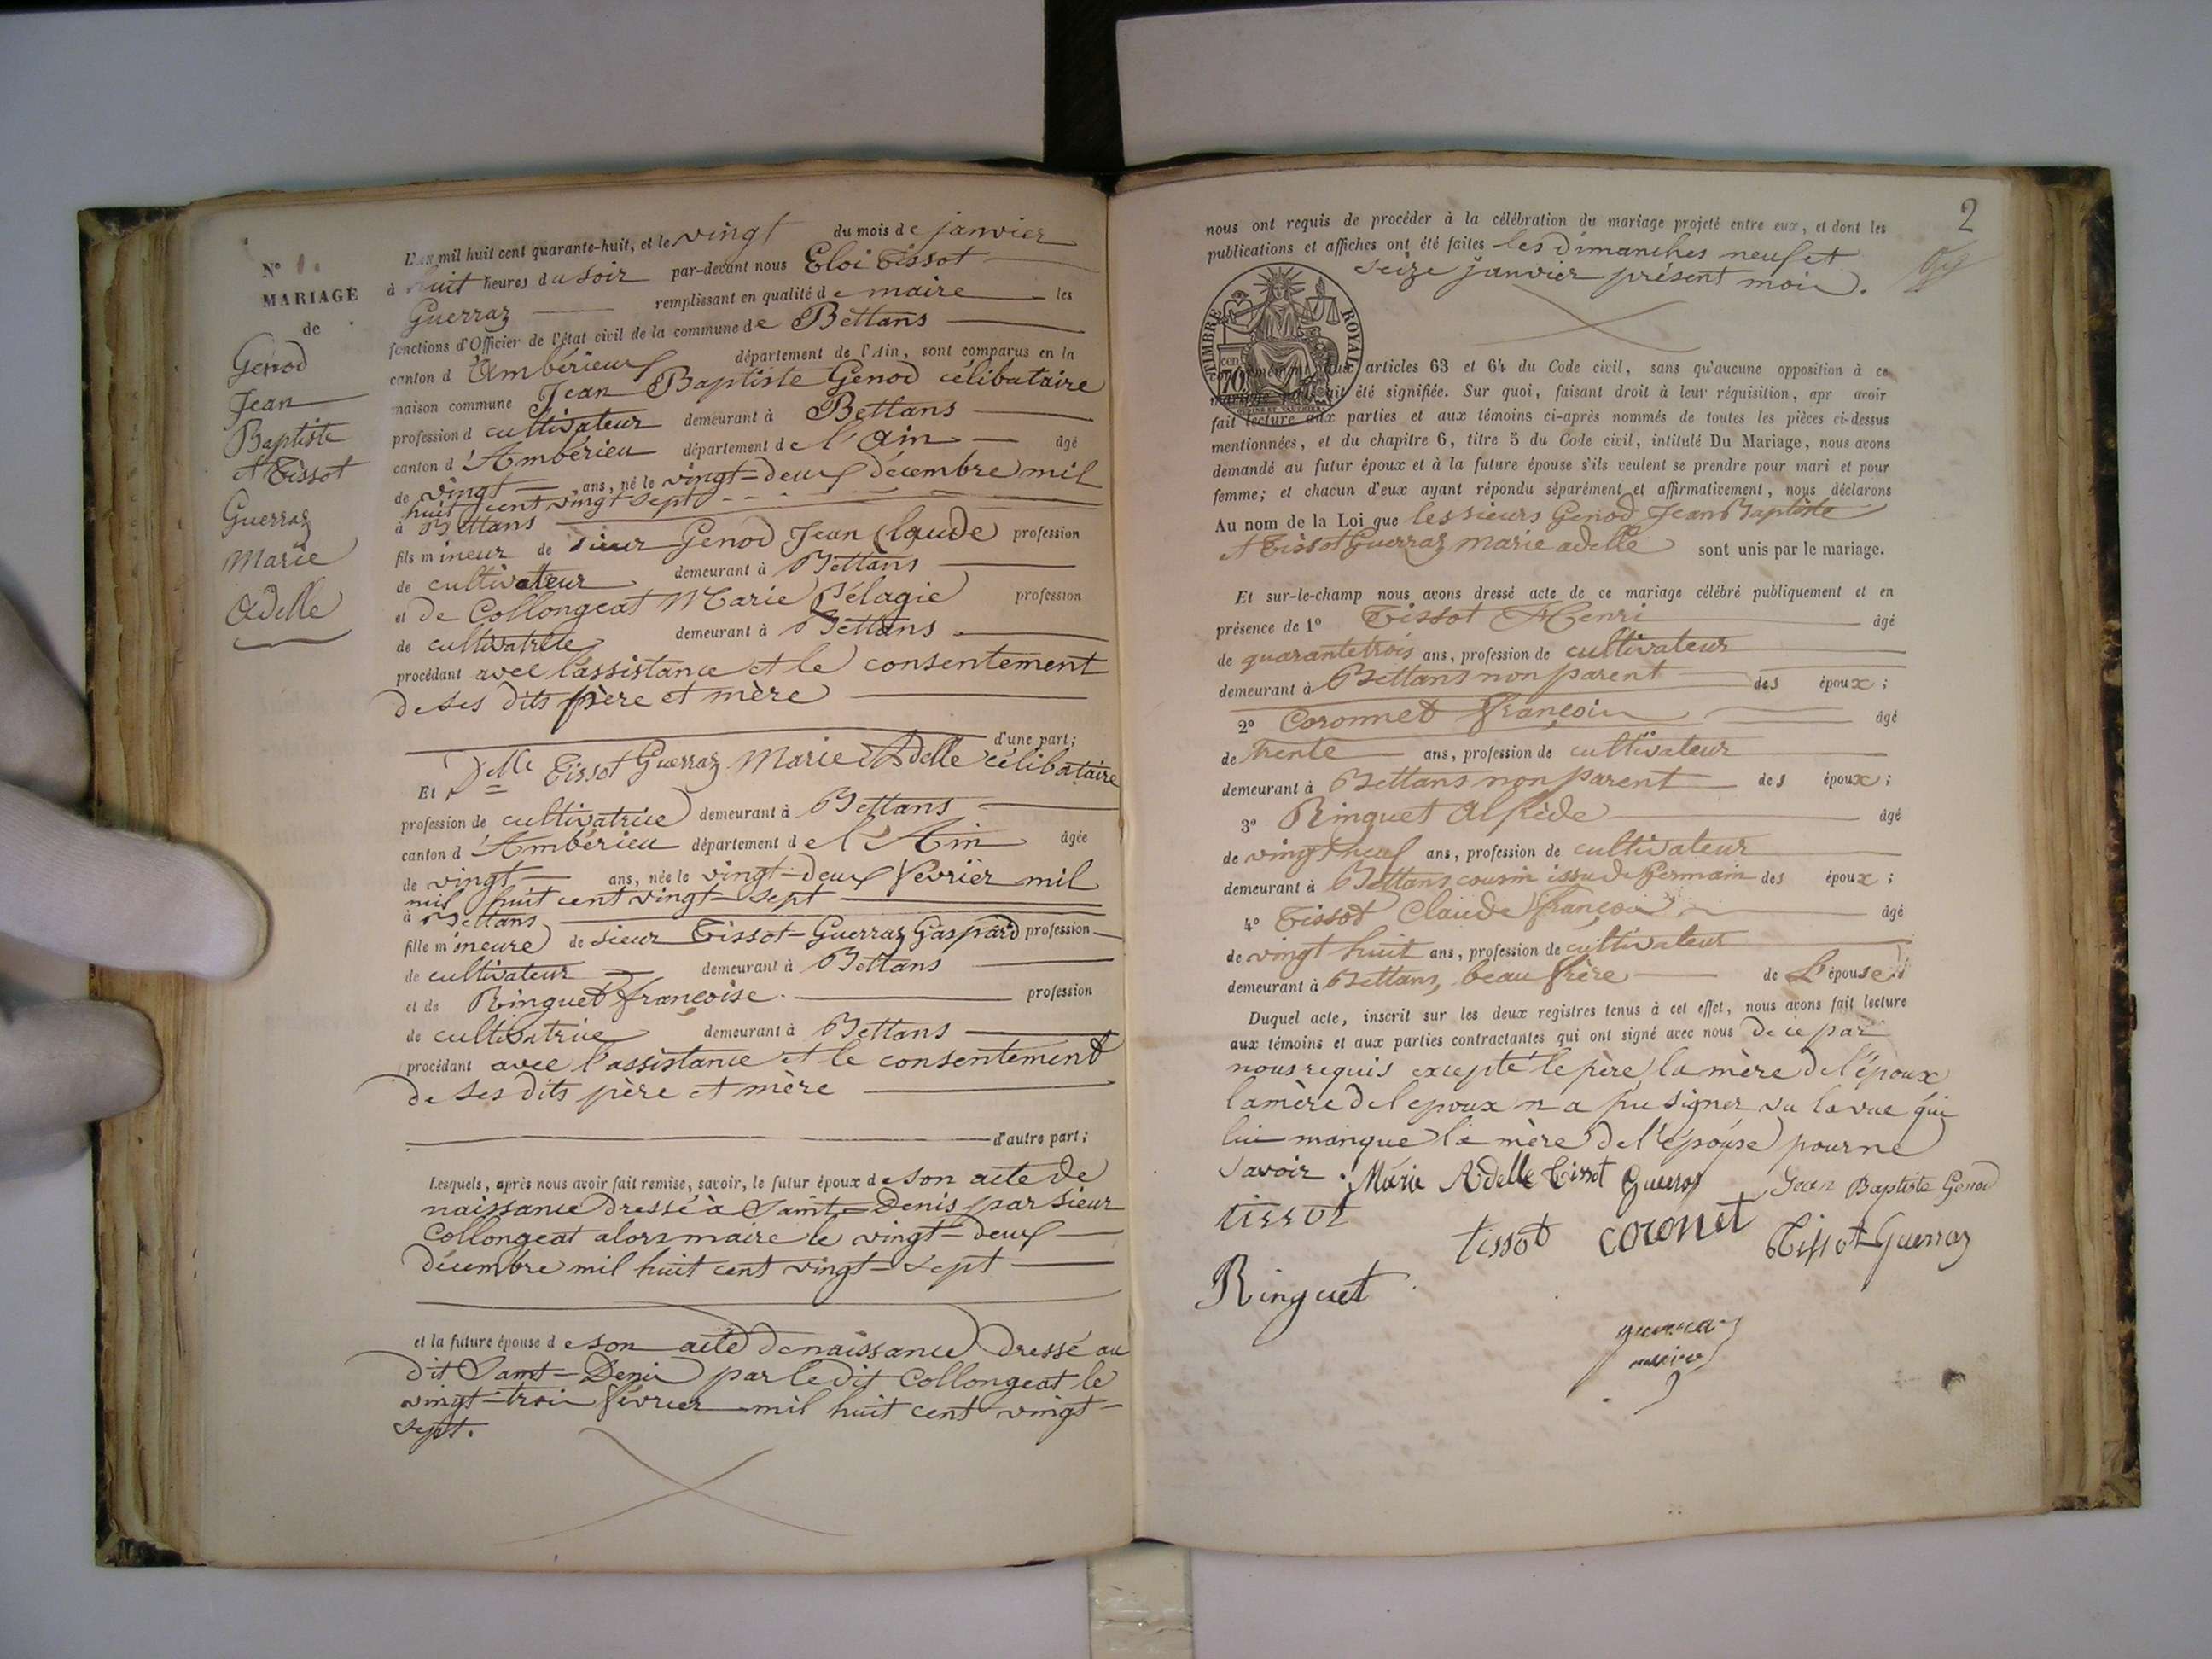 N° 1.
MARIAGE
de
Genod
Jean
Baptiste
et Tissot
Guerraz
Marie
Adelle
L'an mil huit cent quarante-huit, et le vingt du mois de janvier
à huit heures du soir par-devant nous Eloi Tissot
Guerraz remplissant en qualité de maire les
fonctions d'Officier de l'état civil de la commune de Bettans
canton d'Ambérieux département de l'Ain, sont comparus en la
maison commune Jean Baptiste Genod célibataire
profession d cultivateur demeurant à Bettans
canton d'Ambérieu département de l'Ain âgé
de vingt ans, né le vingt-deux décembre mil
huit cent vingt-sept
à Bettans
fils mineur de sieur Genod Jean Claude profession
de cultivateur demeurant à Bettans
et de Collongeat Marie Pélagie profession
de cultivatrice demeurant à Bettans
procédant avec l'assistance et le consentement
de ses dits père et mère
d'une part;
Et Delle Tissot Guerraz Marie Adelle célibataire
profession de cultivatrice demeurant à Bettans
canton d'Ambérieu département de l'Ain âgée
de vingt ans, née le vingt-deux février mil
mil huit cent vingt-sept
à Bettans
fille mineure de sieur Tissot-Guerraz Gaspard profession
de cultivateur demeurant à Bettans
et de Ringuet françoise profession
de cultivatrice demeurant à Bettans
procédant avec l'assistance et le consentement
de ses dits père et mère
d'autre part;
Lesquels, après nous avoir fait remise, savoir, le futur époux de son acte de
naissance dressé à Saint-Denis par sieur
Collongeat alors maire le vingt-deux
décembre mil huit cent vingt-sept
et la future épouse de son acte de naissance dressé au
dit Saint-Denis par le dit Collongeat le
vingt-trois février mil huit cent vingt-
sept.
2
nous ont requis de procéder à la célébration du mariage projeté entre eux, et dont les
publications et affiches ont été faites les dimanches neuf et
seize janvier présent mois.
TIMBRE ROYAL
70 cen
conformément aux articles 63 et 64 du Code civil, sans qu'aucune opposition à ce
mariage nous ait été signifiée. Sur quoi, faisant droit à leur réquisition, apr avoir
fait lecture aux parties et aux témoins ci-après nommés de toutes les pièces ci-dessus
mentionnées, et du chapitre 6, titre 5 du Code civil, intitulé Du Mariage, nous avons
demandé au futur époux et à la future épouse s'ils veulent se prendre pour mari et pour
femme; et chacun d'eux ayant répondu séparément et affirmativement, nous déclarons
Au nom de la Loi que les sieurs Genod Jean Baptiste
et Tissot Guerraz Marie adelle sont unis par le mariage.
Et sur-le-champ nous avons dressé acte de ce mariage célébré publiquement et en
présence de 1° Tissot Henri âgé
de quarante trois ans, profession de cultivateur
demeurant à Bettans non parent des époux;
2° Coronnet françois âgé
de trente ans, profession de cultivateur
demeurant à Bettans non parent des époux;
3° Ringuet Alfrède âgé
de vingt neuf ans, profession de cultivateur
demeurant à Bettans, cousin issu de germain des époux;
4° Tissot Claude françois âgé
de vingt huit ans, profession de cultivateur
demeurant à Bettans, beau frère de L'épouse
Duquel acte, inscrit sur les deux registres tenus à cet effet, nous avons fait lecture
aux témoins et aux parties contractantes qui ont signé avec nous de ce par
nous requis excepté le père la mère de l'époux
la mère de l'epoux n'a pu signer vu la vue qui
lui manque la mère de l'épouse pour ne
savoir. Marie Adelle Tissot Guerraz Jean Baptiste Genod
tissot tissot coronet Tissot-Guerraz
Ringuet
guerraz
maire